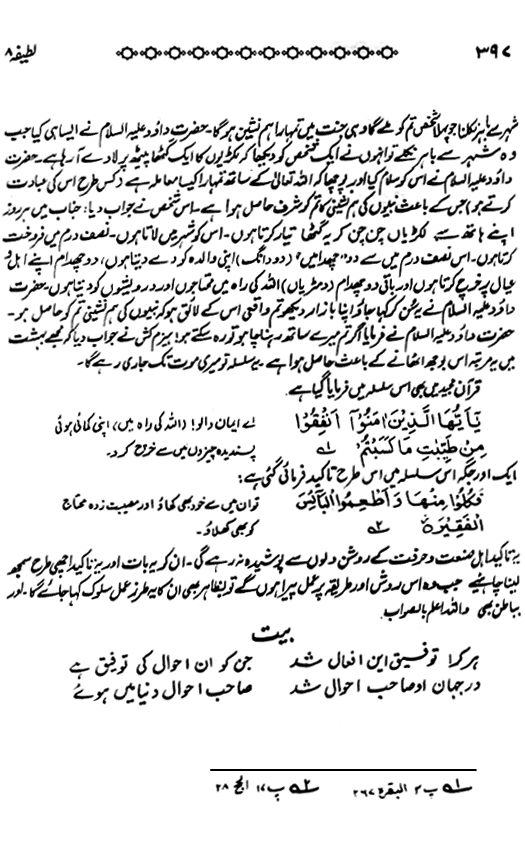 ۳۹۷ لطیفہ ۸
شہر سے باہر نکلنا جو پہلا شخص تم کو ملے گا وہی جنت میں تمہارا ہم نشین ہوگا۔ حضرت داؤد علیہ السلام نے ایسا ہی کیا جب
وہ شہر سے باہر نکلے تو انہوں نے ایک شخص کو دیکھا کہ لکڑیوں کا ایک گٹھا پیٹھ پر لادے آ رہا ہے۔ حضرت
داؤد علیہ السلام نے اس کو سلام کیا اور پوچھا کہ اللہ تعالیٰ کے ساتھ تمہارا کیا معاملہ ہے (کس طرح اس کی عبادت
کرتے ہو) جس کے باعث نبیوں کی ہم نشینی کا تم کو شرف حاصل ہوا ہے۔ اس شخص نے جواب دیا: جناب میں ہر روز
اپنے ہاتھ سے لکڑیاں چن چن کر یہ گٹھا تیار کرتا ہوں۔ اس کو شہر میں لاتا ہوں۔ نصف درم میں فروخت
کرتا ہوں۔ اس نصف درم میں سے دو "چھدام" (دو دانگ) اپنی والدہ کو دے دیتا ہوں، دو چھدام اپنے اہل و
عیال پر خرچ کرتا ہوں اور باقی دو چھدام (دو مڑیاں) اللہ کی راہ میں محتاجوں اور درویشوں کو دیتا ہوں۔ حضرت
داؤد علیہ السلام نے یہ سن کر کہا جاؤ اپنا بازار دیکھو تم واقعی اس کے لائق ہو کہ نبیوں کی ہم نشینی تم کو حاصل ہو۔
حضرت داؤد علیہ السلام نے فرمایا اگر تم میرے ساتھ رہنا چاہو تو رہ سکتے ہو! ہیزم کش نے جواب دیا کہ مجھے بہشت
میں یہ مرتبہ اس بوجھ اٹھانے کے باعث حاصل ہوا ہے۔ یہ سلسلہ تو میری موت تک جاری رہے گا۔
قرآن مجید میں بھی اس سلسلہ میں فرمایا گیا ہے۔
يٰۤاَيُّهَا الَّذِيْنَ اٰمَنُوْۤا اَنْفِقُوْا اے ایمان والو! (اللہ کی راہ میں) اپنی کمائی ہوئی
مِنْ طَيِّبٰتِ مَا كَسَبْتُمْ ۱؎ پسندیدہ چیزوں میں سے خرچ کرو۔
ایک اور جگہ اس سلسلہ میں اس طرح تاکید فرمائی گئی ہے:
فَكُلُوْا مِنْهَا وَاَطْعِمُوا الْبَآئِسَ تو ان میں سے خود بھی کھاؤ اور مصیبت زدہ محتاج
الْفَقِيْرَ ۲؎ کو بھی کھلاؤ۔
یہ تاکید اہل صنعت و حرفت کے روشن دلوں سے پوشیدہ نہ رہے گی۔ ان کو یہ بات اور یہ تاکید اچھی طرح سمجھ
لینا چاہئیے جب وہ اس روش اور طریقہ پر عمل پیرا ہوں گے تو بظاہر بھی ان کا یہ طرز عمل سلوک کہا جائے گا۔ اور
بباطن بھی واللہ اعلم بالصواب۔
بیت
ہر کرا توفیق این افعال شد جن کو ان احوال کی توفیق ہے
در جہان او صاحب احوال شد صاحب احوال دنیا میں ہوئے
۱؎ پ ۳ البقرہ ۲۶۷ ۲؎ پ ۱۷ الحج ۲۸